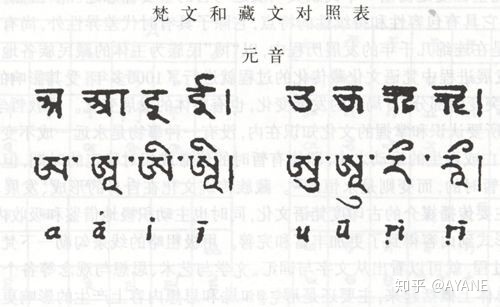 梵文和藏文对照表
元音
अ आ इ ई। उ ऊ ऋ ॠ।
ཨ་ཨཱ་ཨི་ཨཱི། ཨུ་ཨཱུ་རྀ་རཱྀ།
a ā i ī u ū ṛi ṛī
知乎 @AYANE